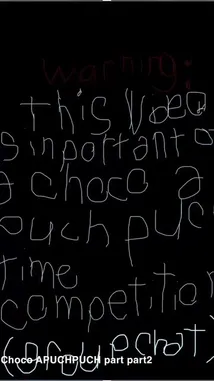 warning:
this Video
s inportant o
a choco a
ouch puc
time
competitio
Choco APUCHPUCH part part2